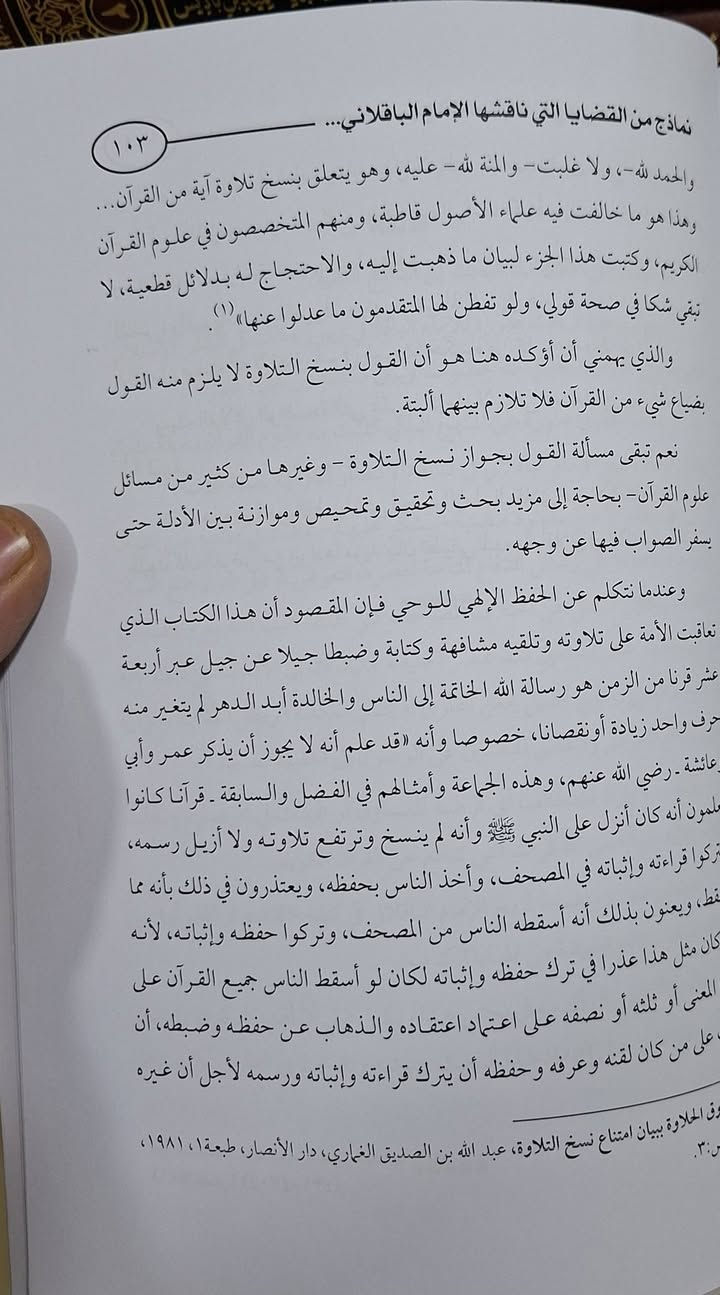 نماذج من القضايا التي ناقشها الإمام الباقلاني...
١٠٣
والحمد لله-، ولا غلبت- والمنة لله- عليه، وهو يتعلق بنسخ تلاوة آية من القرآن...
وهذا هو ما خالفت فيه علماء الأصول قاطبة، ومنهم المتخصصون في علوم القرآن
الكريم، وكتبت هذا الجزء لبيان ما ذهبت إليه، والاحتجاج له بدلائل قطعية، لا
تبقي شكا في صحة قولي، ولو تفطن لها المتقدمون ما عدلوا عنها»(١).
والذي يهمني أن أؤكده هنا هو أن القول بنسخ التلاوة لا يلزم منه القول
بضياع شيء من القرآن فلا تلازم بينهما ألبتة.
نعم تبقى مسألة القول بجواز نسخ التلاوة – وغيرها من كثير من مسائل
علوم القرآن– بحاجة إلى مزيد بحث وتحقيق وتمحيص وموازنة بين الأدلة حتى
يسفر الصواب فيها عن وجهه.
وعندما نتكلم عن الحفظ الإلهي للوحي فإن المقصود أن هذا الكتاب الذي
تعاقبت الأمة على تلاوته وتلقيه مشافهة وكتابة وضبطا جيلا عن جيل عبر أربعة
عشر قرنا من الزمن هو رسالة الله الخاتمة إلى الناس والخالدة أبد الدهر لم يتغير منه
حرف واحد زيادة أونقصانا، خصوصا وأنه «قد علم أنه لا يجوز أن يذكر عمر وأبي
عائشة ـ رضي الله عنهم، وهذه الجماعة وأمثالهم في الفضل والسابقة ـ قرآنا كانوا
لمون أنه كان أنزل على النبي ﷺ وأنه لم ينسخ وترتفع تلاوته ولا أزيل رسمه،
تركوا قراءته وإثباته في المصحف، وأخذ الناس بحفظه، ويعتذرون في ذلك بأنه مما
قط، ويعنون بذلك أنه أسقطه الناس من المصحف، وتركوا حفظه وإثباته، لأنه
كان مثل هذا عذرا في ترك حفظه وإثباته لكان لو أسقط الناس جميع القرآن على
المعنى أو ثلثه أو نصفه على اعتماد اعتقاده والذهاب عن حفظه وضبطه، أن
على من كان لقنه وعرفه وحفظه أن يترك قراءته وإثباته ورسمه لأجل أن غيره
وق الحلاوة ببيان امتناع نسخ التلاوة، عبد الله بن الصديق الغماري، دار الأنصار، طبعة١، ١٩٨١،
ص:٣.